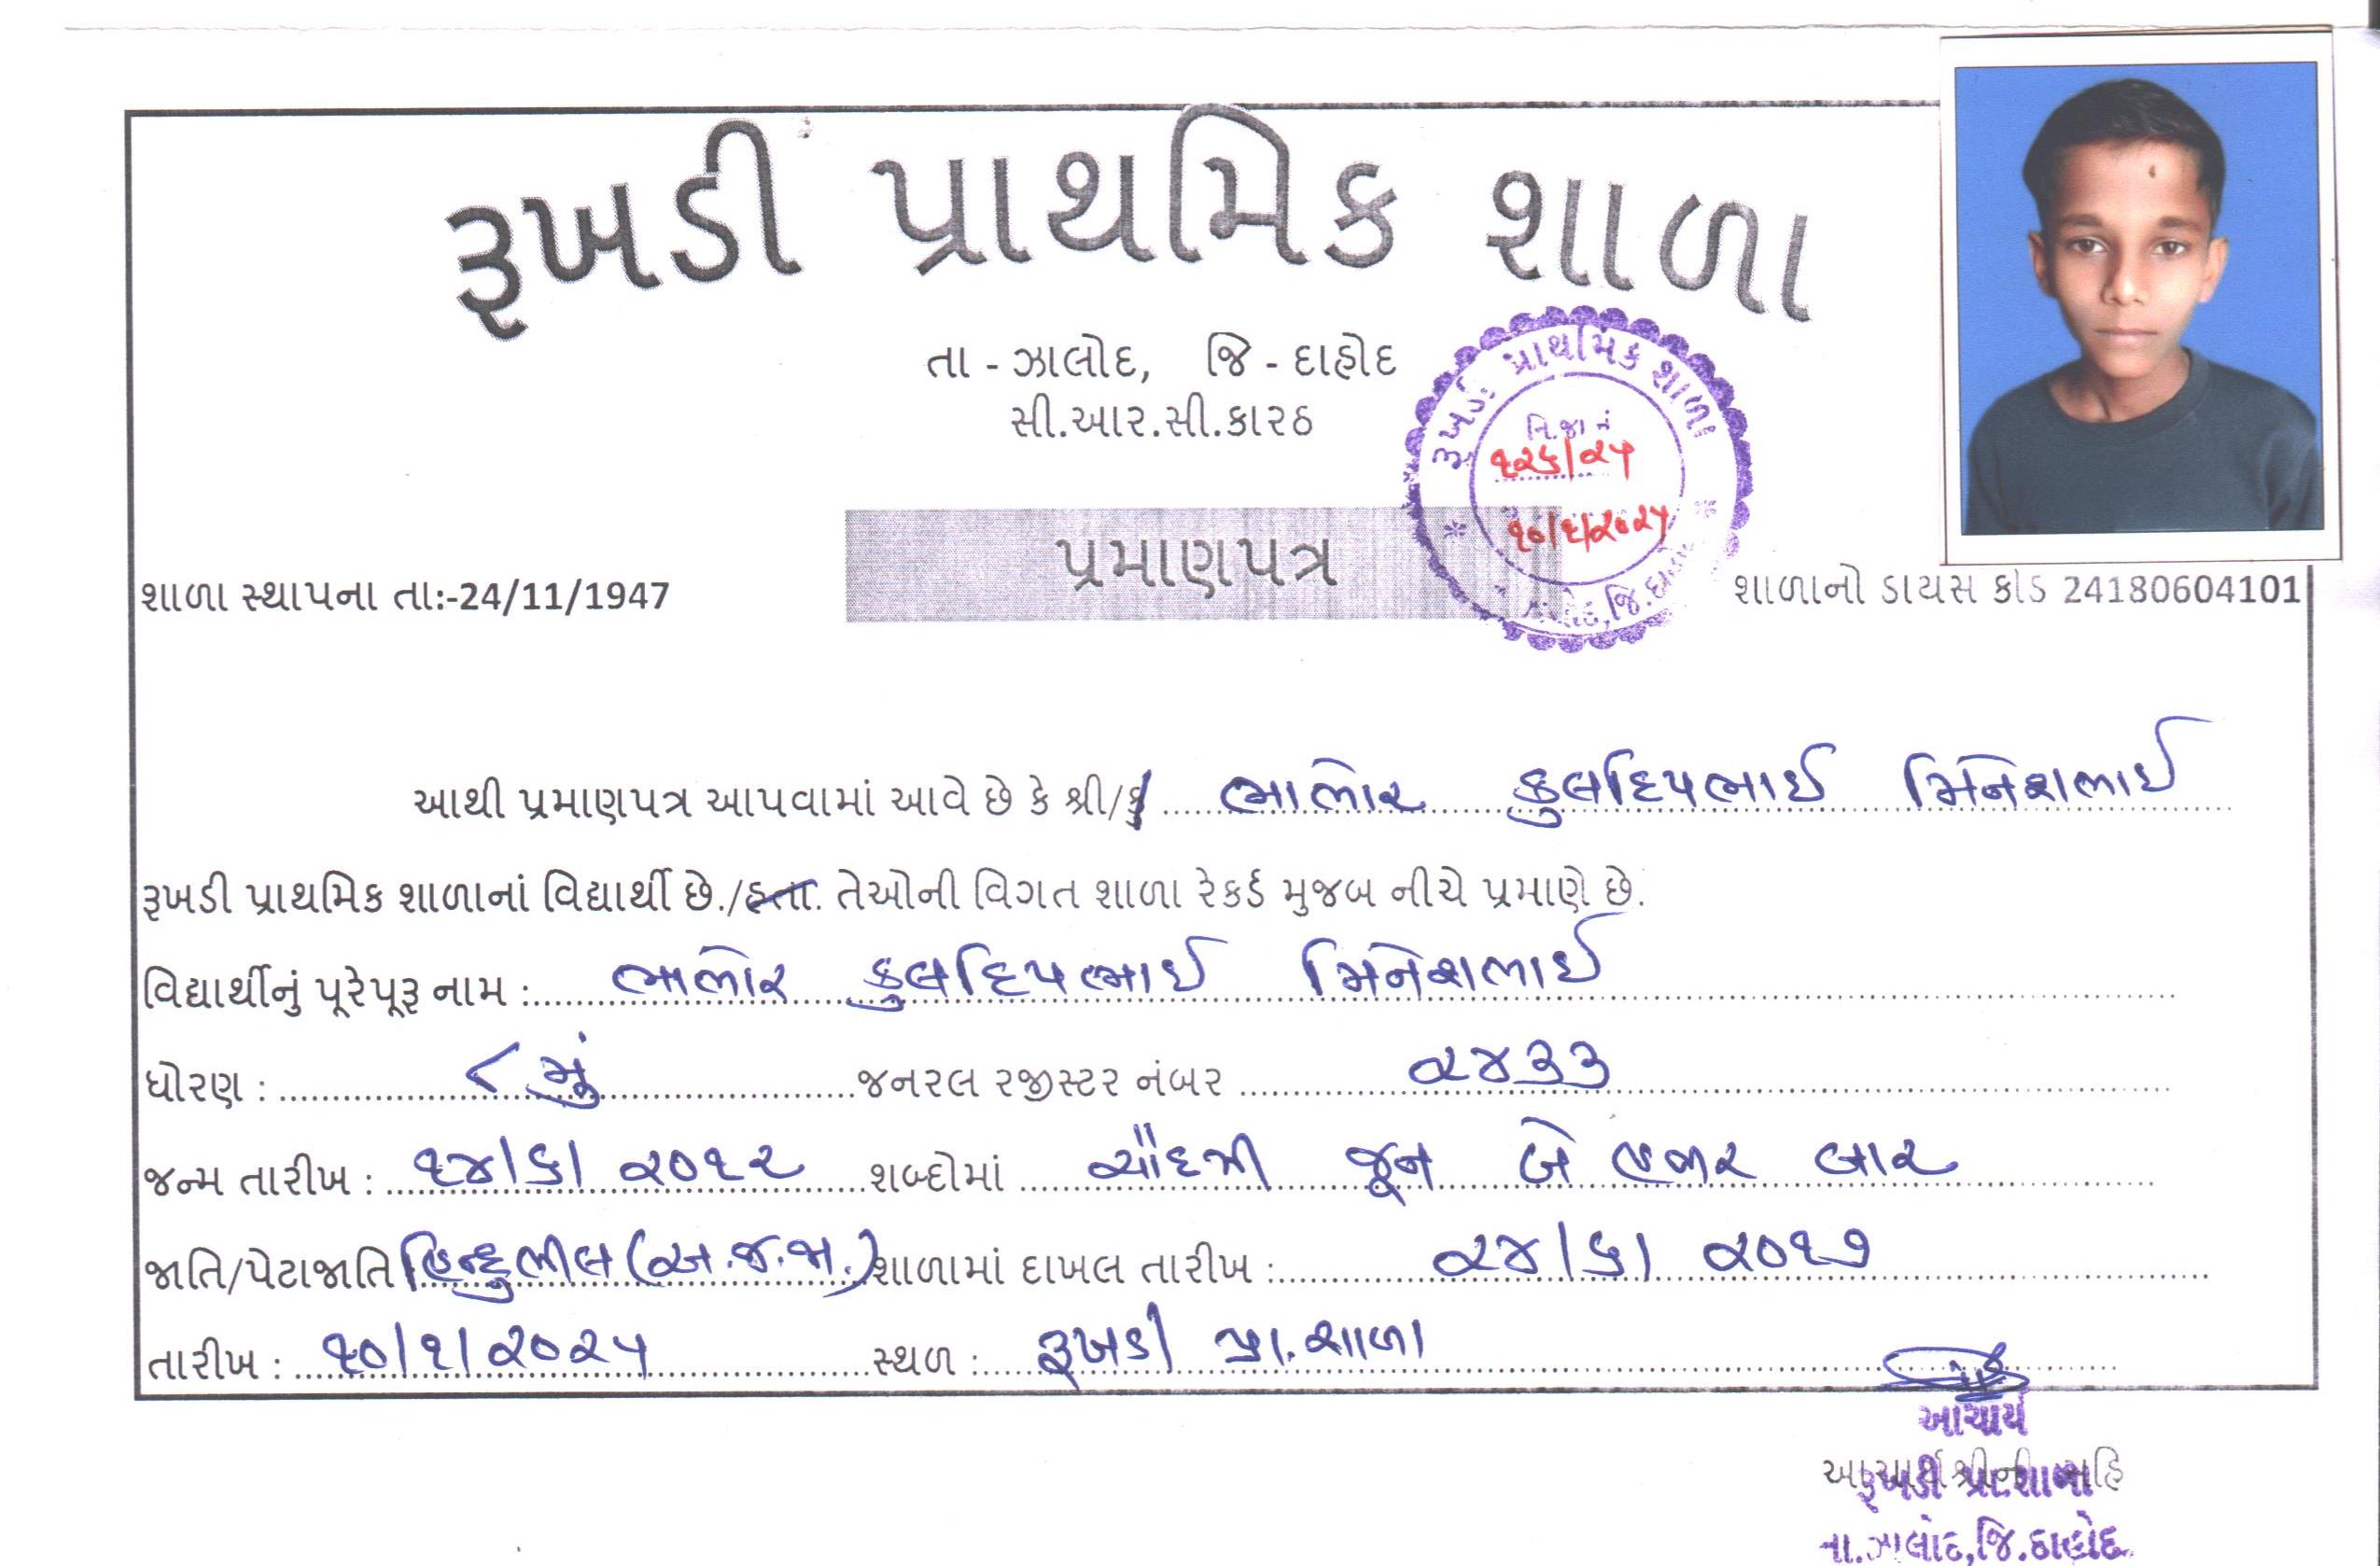 રૂખડી પ્રાથમિક શાળા
તા - ઝાલોદ, જિ - દાહોદ
સી.આર.સી.કારઠ
રૂખડી પ્રાથમિક શાળા
નિ.જા નં
૧૨૬/૨૫
૧૦/૧/૨૦૨૫
પ્રમાણપત્ર
શાળા સ્થાપના તા:-24/11/1947
શાળાનો ડાયસ કોડ 24180604101
આથી પ્રમાણપત્ર આપવામાં આવે છે કે શ્રી/કુ ભાભોર કુલદિપભાઈ મિનેશભાઈ
રૂખડી પ્રાથમિક શાળાનાં વિદ્યાર્થી છે./હતા. તેઓની વિગત શાળા રેકર્ડ મુજબ નીચે પ્રમાણે છે.
વિદ્યાર્થીનું પૂરેપૂરૂ નામ : ભાભોર કુલદિપભાઈ મિનેશભાઈ
ધોરણ : ૮ મું જનરલ રજીસ્ટર નંબર ૨૪૩૩
જન્મ તારીખ : ૧૪/૬/૨૦૧૨ શબ્દોમાં ચૌદમી જૂન બે હજાર બાર
જાતિ/પેટાજાતિ હિન્દુ ભીલ (અ.જ.જા.) શાળામાં દાખલ તારીખ : ૨૪/૬/૨૦૧૭
તારીખ : ૧૦/૧/૨૦૨૫ સ્થળ : રૂખડી પ્રા.શાળા
આચાર્ય
રૂખડી પ્રા.શાળા
તા.ઝાલોદ,જિ.દાહોદ